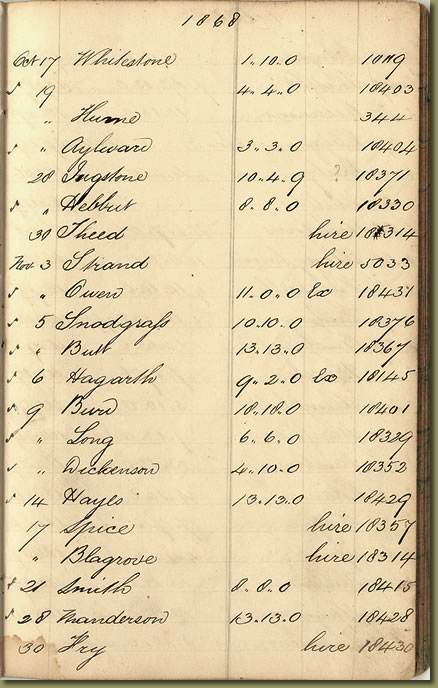 1868
Oct 17 Whitestone 1..10.0
s 19 4..4..0 18403
" Hume 344
s " Aylward 3..3..0 18404
28 Ingstone 10..4..9 ? 18371
s " Hebbut 8..8..0 18330
30 Theed hire 18314
Nov. 3 Strand hire 5033
s " Owen 11..0..0 Ex 18437
s 5 Snodgrass 10.10..0 18376
s " Butt 13.13..0 18367
s 6 Hagarth 9..2..0 Ex 18145
s 9 Burd 18.18.0 18401
s " Long 6..6..0 18329
s " Dickenson 4..10.0 18352
s 14 Hayes 13..13.0 18429
17 Spice hire 18357
" Blagrove hire 18314
s 21 Smith 8..8..0 18415
s 28 Manderson 13.13.0 18428
30 Fry hire 18430